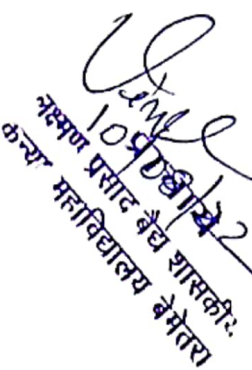 10/08/22
लक्ष्मण प्रसाद बैद्य शासकीय
कन्या महाविद्यालय बेमेतरा